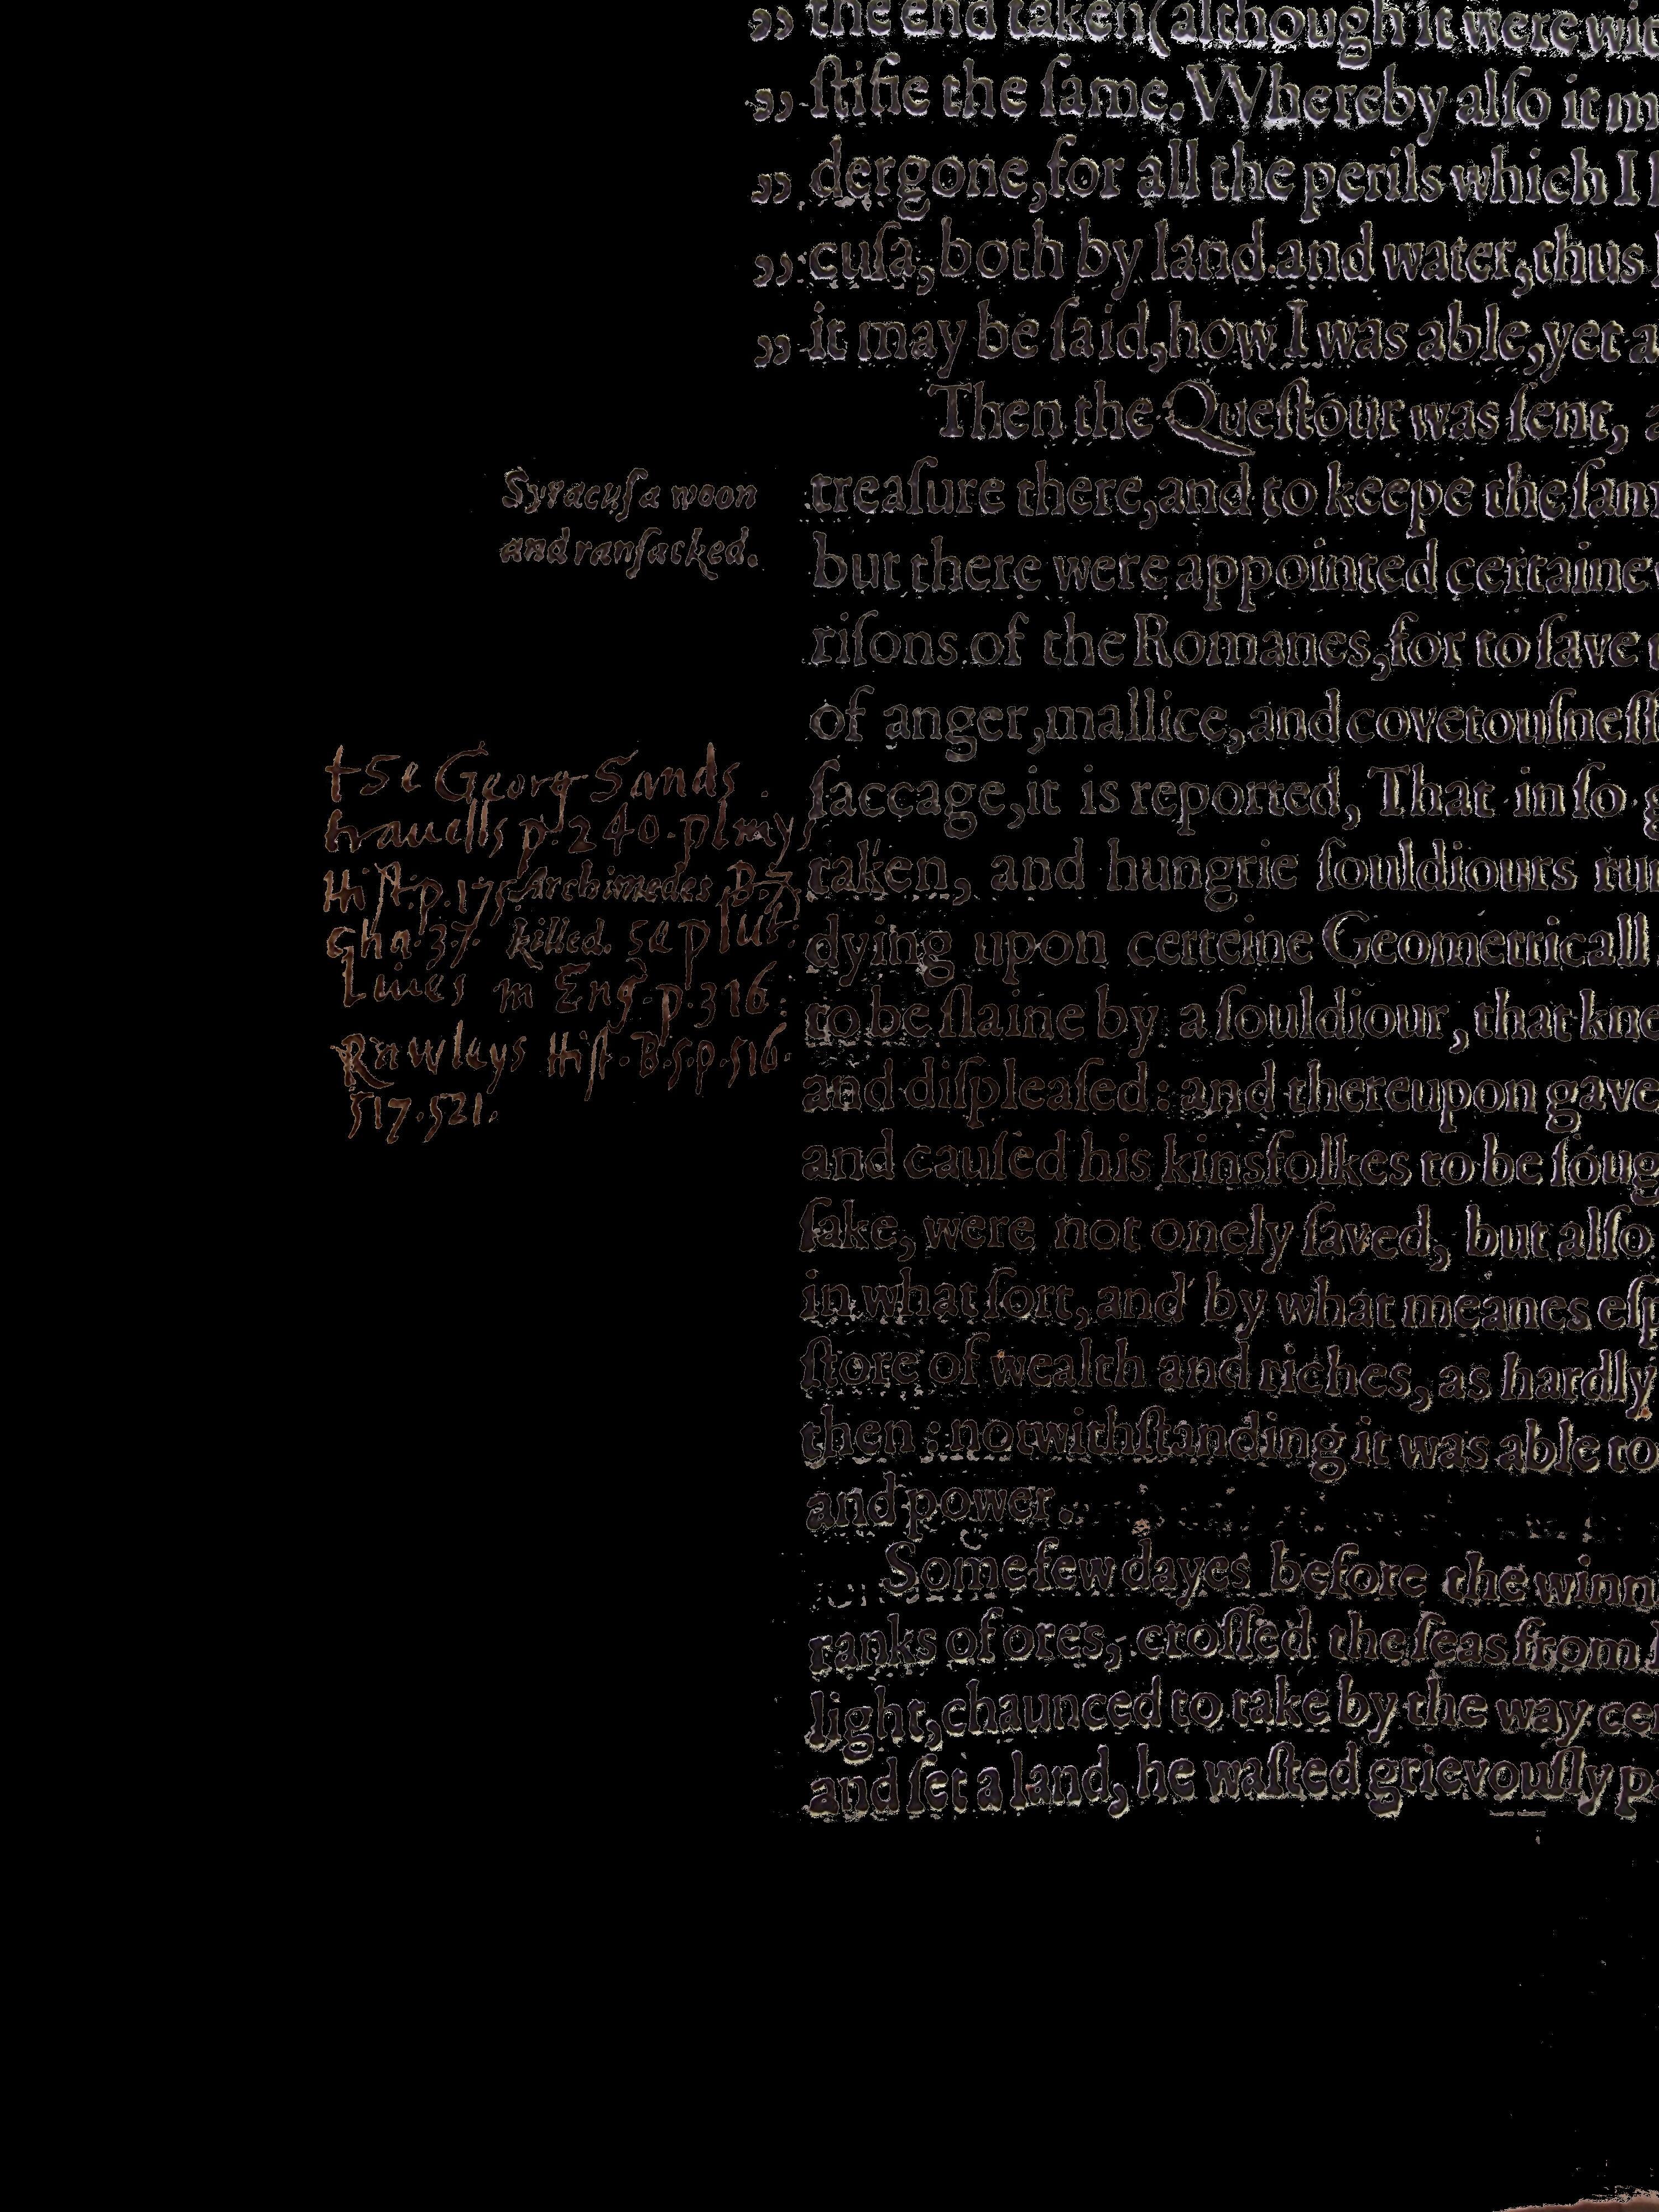 „ the end taken (although it were wit
„ ſtifie the ſame. Whereby alſo it m
„ dergone, for all the perils which I
„ cuſa, both by land and water, thus
„ it may be ſaid, how I was able, yet a
Then the Queſtour was ſent, a
treaſure there, and to keepe the ſam
but there were appointed certaine
riſons of the Romanes, for to ſave
of anger, mallice, and covetouſneſſ
ſaccage, it is reported, That in ſo g
taken, and hungrie ſouldiours run
dying upon certeine Geometricall
to be ſlaine by a ſouldiour, that kne
and diſpleaſed: and thereupon gave
and cauſed his kinsfolkes to be ſoug
ſake, were not onely ſaved, but alſo
in what ſort, and by what meanes eſp
ſtore of wealth and riches, as hardly
then: notwithſtanding it was able to
and power.
Some few dayes before the winn
ranks of ores, croſſed the ſeas from
light, chaunced to take by the way cer
and ſet a land, he waſted grievouſly p
Syracuſa woon
and ranſacked.
Archimedes
killed.
† Se Georg Sands
trauells p. 240. plinys
Hiſt. p. 175 B. 7
cha. 37. Se plut:
Liues in Eng. p. 316.
Rawleys Hiſt. B. 5. p. 516.
517. 521.